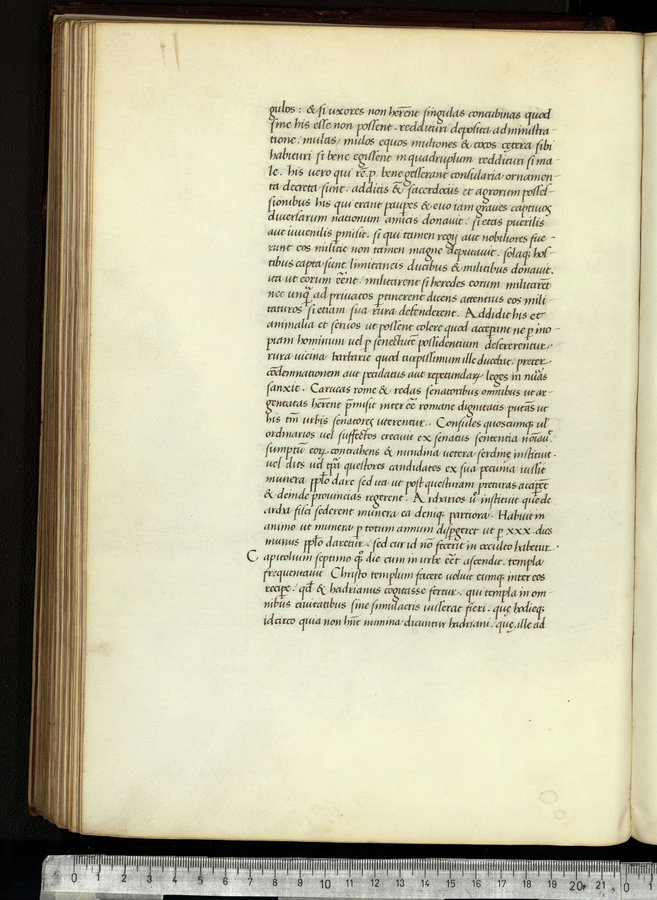 gulos : & si uxores non heret̄ singulas concubinas quod
sine his esse non possent . reddituri deposita administra-
tione . mulas / mulos equos muliones & cocos cetera sibi
habituri si bene egissent in quadruplum reddituri si ma-
le . his uero qui rē.p. bene gesserant consularia ornamen-
ta decreta sunt . additis & sacerdociis et agrorum posses-
sionibus his qui erant paup̄es & euo iam graues captiuos
diuersarum nationum amicis donauit / si etas puerilis
aut iuuenilis p̄misit . si qui tamen regii aut nobiliores fue-
runt eos militie non tamen magne deputauit . sola q; hos-
tibus capta sunt limitaneis ducibus & militibus donauit .
ita ut eorum eēnt / militarent si heredes eorum militarēt
nec unq̄ ad priuatos p̄tinerent dicens attentius eos mili-
taturos si etiam sua rura defenderent . Addidit his et
animalia et seruos ut possent colere quod acceperint ne p̄ ino-
piam hominum uel p̄ senectutē possidentium desererentur .
rura uicina barbarie quod turpissimum ille ducebat . preter
cōdemnationem aut peculatus aut repetundarꝝ leges in
sanxit . Carucas rome & redas senatoribus omnibus ut ar-
gentatas heŕent p̄misit inter eē romane dignitatis putās ut
his tm̄ urbis senatores uterentur . Consules quoscumq; uł
ordinarios uel suffectos creauit ex senatus sententia noīauᵗ
sumptū eorꝝ contrahens & nundina uetera instituit .
uel dies uel tp̄a questores candidatos ex sua pecunia iussit
munera pp̄lo dare sed ita ut post questuram preturas acip̄ēt
& deinde prouincias regerent . Ardrarios instituit que de
arcḥa fisci sederent munera ea deniq; partiora . Habuit in
animo ut munera p̄ totum annum disp̄geret ut p̄ xxx . dies
munus pp̄lo daretur . sed cur id nō fecerit in occulto habetur .
Capitolium septimo q̊; die cum in urbe eēt ascendit . templa
frequentauit Christo templum facere uoluit eumq; inter eos
recip̄e / qd̄ & hadrianus cogitasse fertur . qui templa in om-
nibus ciuitatibus sine simulacris iusserat fieri . quę hodieq;
idcirco quia non hn̄t numina dicuntur hadriani . quę ille ad
0 1 2 3 4 5 6 7 8 9 10 11 12 13 14 15 16 17 18 19 20 21 0 1